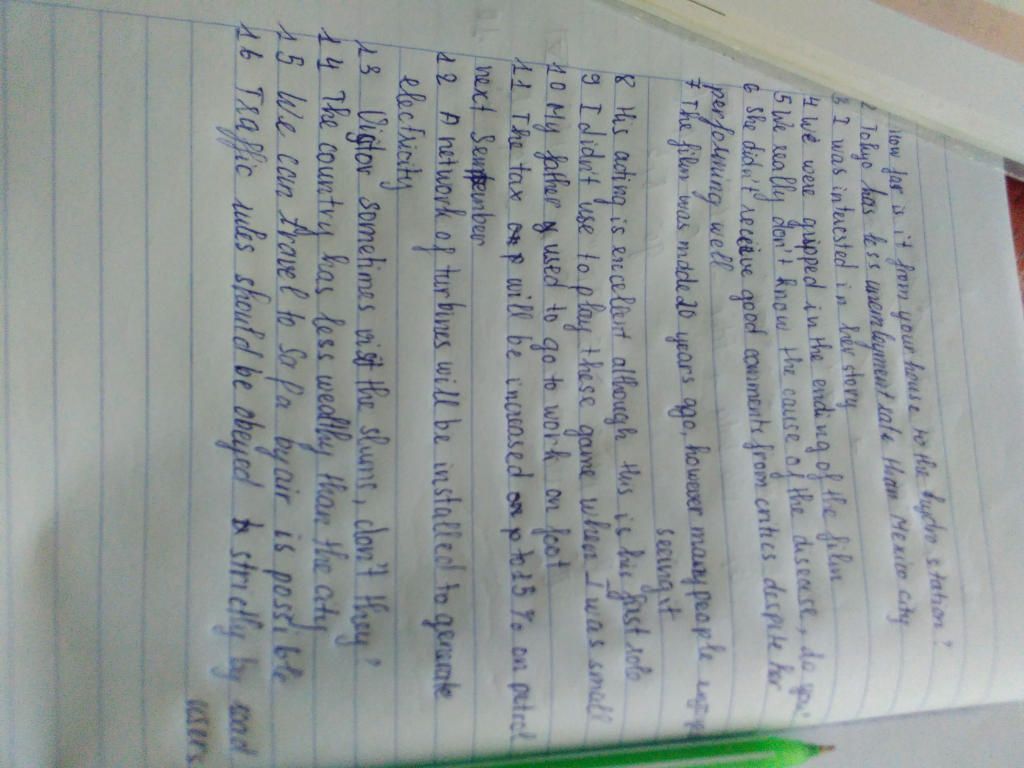 how far is it from your house to the hydro station?
2 Tokyo has less unemloyment rate than Mexico city
3 I was intersted in her story
4 We were gripped in the ending of the film
5 We really don't know the cause of the disease, do you?
6 She didn't receive good comments from critics despite her
performing well
7 The film was made 20 years ago, however many people
seeing it
8 His acting is encelent although this is his first role
9 I didn't use to play these game when I was small
10 My father used to go to work on foot
11 The tax will be increased to 15% on petrol
next September
12 A network of turbins will be installed to generate
electricity
13 Visitor sometimes visit the slums, don't they?
14 The country has less wealthy than the city
15 We can travel to Sa Pa by air is possible
16 Traffic rules should be obeyed strictly by road
users